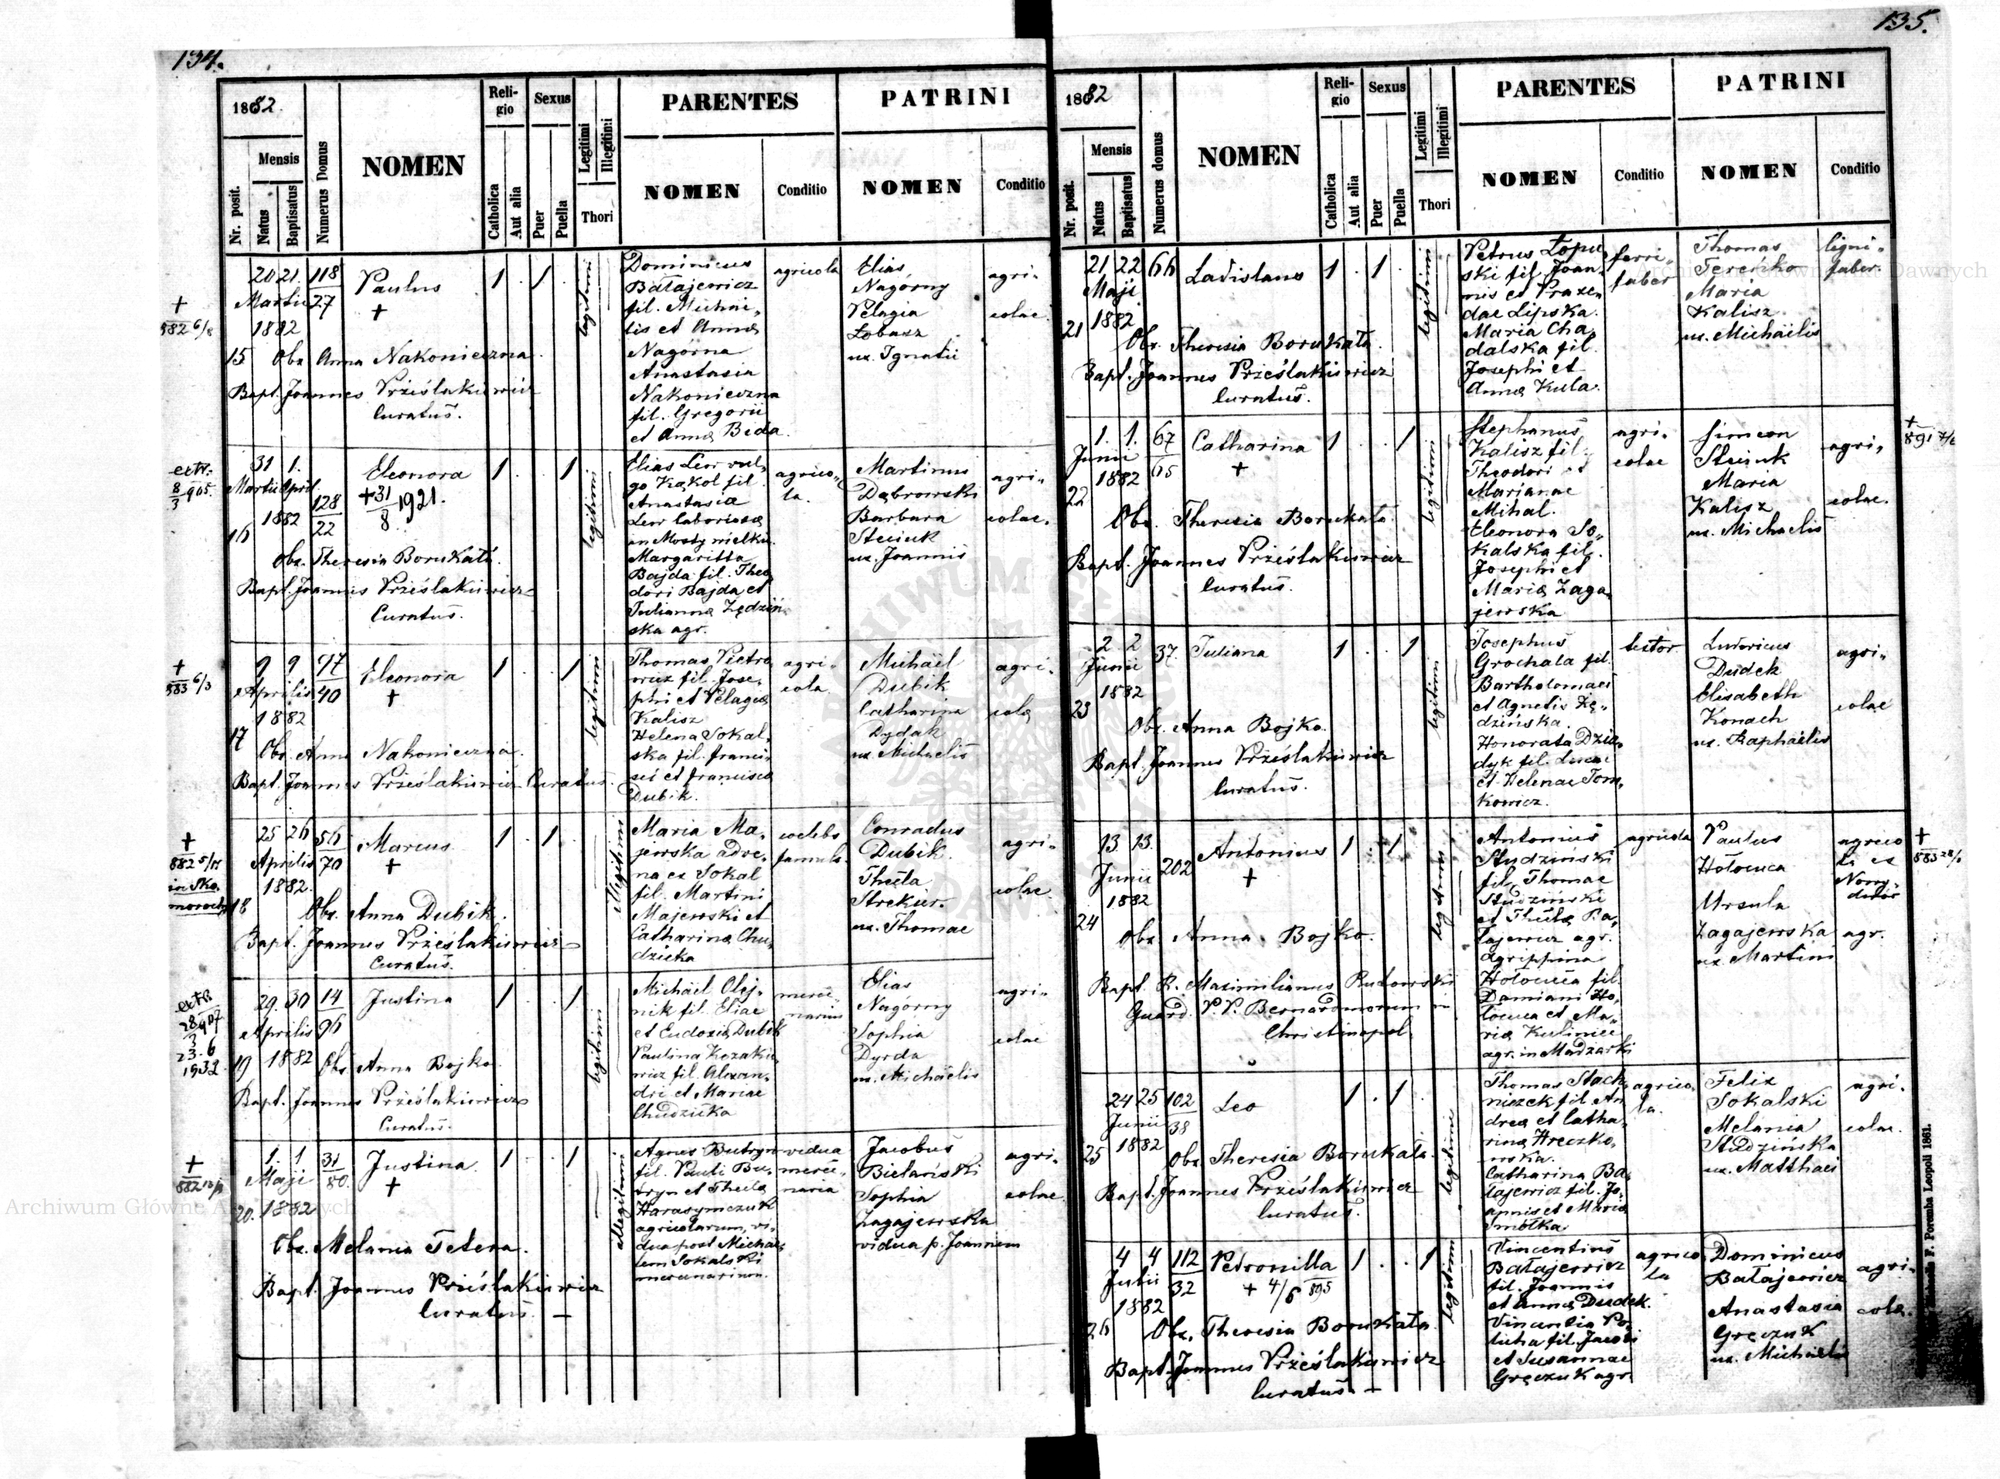 134.
1882.
Nr. posit.
Mensis
Natus
Baptisatus
Numerus Domus
NOMEN
Religio
Catholica
Aut alia
Sexus
Puer
Puella
Legitimi
Illegitimi
Thori
PARENTES
NOMEN
Conditio
PATRINI
NOMEN
Conditio
20 21. 118
Martii 27
1882
Paulus
+
1 . 1 .
legitimi
Dominicus
Batajewicz
fil. Michae-
lis et Anna
Nagórna
Anastasia
Nakonieczna
fil. Gregorii
et Anna Beda.
agricola
Elias
Nagórny
Pelagia
Łobasz
ux. Ignatii
agri-
colae.
15 Obs. Anna Nakonieczna.
Bapt. Joannes Prześlakiewicz
Curatus.
31 1.
Martii April.
1882
128
22
Eleonora
+31
8 1921.
1 . . 1
legitimi
Elias Lew vul-
go Kąkol fil
Anastasia
Lew laboriosa
in Mosty wielkie
Margaritta
Bajda fil. Theo-
dori Bajda et
Julianna Zędziń-
ska agr.
agrico-
la.
Martinus
Dąbrowski
Barbara
Steciuk
ux. Joannis
agri-
colae.
16
Obs. Theresia Borukała.
Bapt. Joannes Prześlakiewicz
Curatus.
9 9 97
Aprilis 40
1882
Eleonora
+
1 . . 1
legitimi
Thomas Pietro-
wicz fil. Jose-
phi et Pelagia
Kalisz
Helena Sokal-
ska fil. Franci-
sci et Francisca
Dubik.
agri-
cola
Michael
Dubik
Catharina
Dydak
ux. Michaelis
agri-
cola
17 Obs. Anna Nakonieczna.
Bapt. Joannes Prześlakiewicz Curatus.
25 26 56
Aprilis 70
1882.
Marcus
+
1 . 1 .
illegitimi
Maria Ma-
jewska adve-
na ex Sokal
fil. Martini
Majewski et
Catharina Chu-
dzicka
coelebs
famula.
Conradus
Dubik
Thecla
Strekier.
ux. Thomae
agri-
colae
18 Obs. Anna Dubik.
Bapt. Joannes Prześlakiewicz
Curatus.
29. 30 14
Aprilis 96
1882
Justina
1 . . 1
legitimi
Michael Olej-
nik fil. Eliae
et Eudoxia Dubik
Paulina Kozakie-
wicz fil. Alexan-
dri et Mariae
Chudzicka
merce-
narius
Elias
Nagórny
Sophia
Dyrda
ux. Michaelis
agri-
colae
19 Obs. Anna Bojko
Bapt. Joannes Prześlakiewicz
Curatus.
1. 1 31
Maji 80
1882
Justina
+
1 . . 1
illegitimi
Agnes Butryn
fil. Pauli Bu-
tryn et Thecla
Harasymczuk
agricolarum, vi-
dua post Micha-
lem Sokalski
mercenarium.
vidua
merce-
naria
Jacobus
Bielawski
Sophia
Zagajewska
vidua p. Joannem
agri-
colae
20.
Obs. Melania Tetera.
Bapt. Joannes Prześlakiewicz
Curatus. —
135.
1882
Nr. posit.
Mensis
Natus
Baptisatus
Numerus domus
NOMEN
Religio
Catholica
Aut alia
Sexus
Puer
Puella
Legitimi
Illegitimi
Thori
PARENTES
NOMEN
Conditio
PATRINI
NOMEN
Conditio
21 22 66
Maji
1882
Ladislaus
1 . 1 .
legitimi
Petrus Łopu-
ski fil. Joan-
nis et Praxe-
dae Lipska.
Maria Cha-
dalska fil.
Josephi et
Anna Kula.
ferri-
faber
Thomas
Tereszko
Maria
Kalisz
ux. Michaelis
ligni-
faber.
21
Obs. Theresia Borukała.
Bapt. Joannes Prześlakiewicz
Curatus.
1. 1. 67
Junii 65
1882
Catharina
+
1 . . 1
legitimi
Stephanus
Kalisz fil.
Theodori et
Marianae
Mihal.
Eleonora So-
kalska fil.
Josephi et
Maria Zaga-
jewska
agri-
colae
Simeon
Steciuk
Maria
Kalisz
ux. Michaelis
agri-
colae.
22
Obs. Theresia Borukała
Bapt. Joannes Prześlakiewicz
Curatus.
2 2 37.
Junii
1882
Juliana
1 . . 1
legitimi
Josephus
Grochala fil.
Bartholomaei
et Agnetis Zę-
dzińska.
Honorata Dzia-
dyk fil. Lucae
et Helenae Tom-
kowicz.
textor
Ludovicus
Dudek
Elisabeth
Konach
ux. Raphaelis
agri-
colae
23
Obs. Anna Bojko.
Bapt. Joannes Prześlakiewicz
Curatus.
13 13.
Junii 202
1882
Antonius
+
1 . 1 .
legitimi
Antonius
Studzinski
fil. Thomae
Studzinski
et Thecla Ba-
tajewicz agr.
Agrippina
Hołocuca fil.
Damiani Ho-
łocuca et Ma-
ria Kulinicz
agr. in Madzarki
agricola
Paulus
Hołocuca
Ursula
Zagajewska
ux. Martini
agrico
la ex
Nowy
dwór
agr.
24
Obs. Anna Bojko.
Bapt. R. Maximilianus Rudowski
Guard. P. P. Bernardinorum in
Christinopol.
24 25 102
Junii 38
1882
Leo
1 . 1 .
legitimi
Thomas Stach-
niczek fil. An-
drea et Catha-
rina Hreczko-
wska.
Catharina Ba-
tajewicz fil. Jo-
annis et Maria
Smolka.
agrico-
la.
Felix
Sokalski
Melania
Studzińska
ux. Matthaei
agri-
colae.
25 Obs. Theresia Borukała.
Bapt. Joannes Prześlakiewicz
Curatus.
4 4 112
Julii 32
1882
Petronilla
+ 4/6 895
1 . . 1
legitimi
Vincentius
Batajewicz
fil. Joannis
et Anna Dudek.
Vincentia Po-
licha fil. Jacobi
et Susannae
Greczuk agr.
agrico-
la
Dominicus
Batajewicz
Anastasia
Greczuk
ux. Michaelis
agri-
cola.
26 Obs. Theresia Borukała.
Bapt. Joannes Prześlakiewicz
Curatus. —
F. Poremba Leopoli 1861.
Archiwum Główne Akt Dawnych